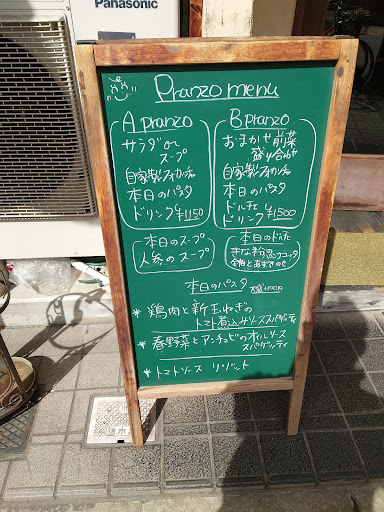 Panasonic
Pranzo menu
A pranzo
サラダ or
スープ
自家製フォカッチャ
本日のパスタ
ドリンク ¥1150
B pranzo
おまかせ前菜
盛り合わせ
自家製フォカッチャ
本日のパスタ
ドルチェ
ドリンク ¥1500
本日のスープ
人参のスープ
本日のドルチェ
きな粉の
本日のパスタ
* 鶏肉と新玉ねぎの
トマト煮込みソーススパゲッティ
* 春野菜とアンチョビのオイルソース
スパゲッティ
* トマトソース リゾット